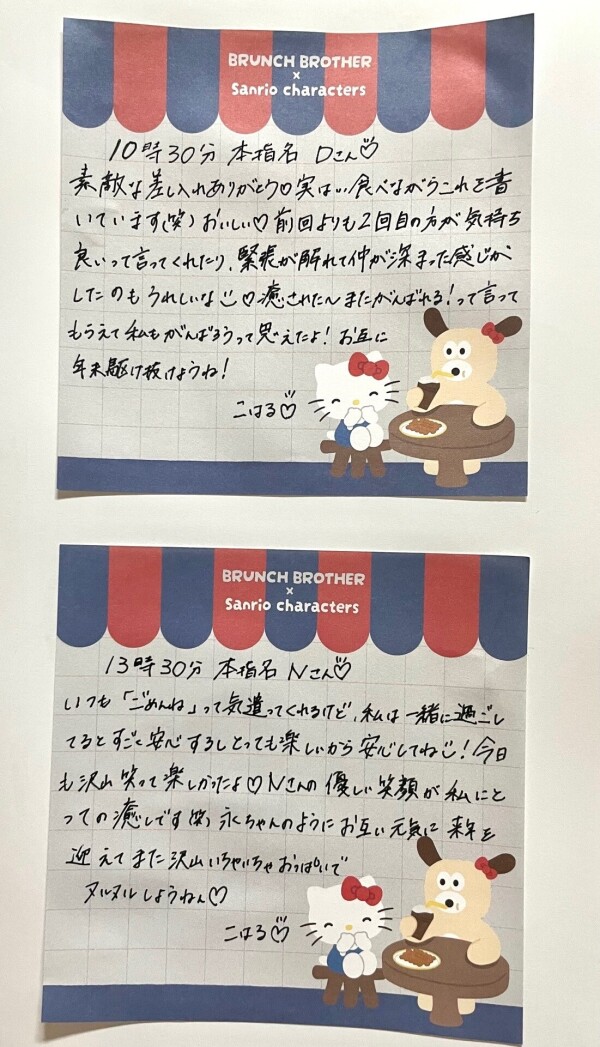 BRUNCH BROTHER
×
Sanrio characters
10時30分 本指名 Dさん♡
素敵な差し入れありがとう♡実は…食べながらこれを書
いています(笑)おいしい♡前回よりも2回目の方が気持ち
良いって言ってくれたり、緊張が解れて仲が深まった感じが
したのもうれしいな♡癒された〜またがんばれる!って言って
もらえて私もがんばろうって思えたよ!お互に
年末駆け抜けようね!
こはる♡
BRUNCH BROTHER
×
Sanrio characters
13時30分 本指名 Nさん♡
いつも「ごめんね」って気遣ってくれるけど、私は一緒に過ごし
てるとすごく安心するしとっても楽しいから安心してね!今日
も沢山笑って楽しかったよ♡Nさんの優しい笑顔が私にと
っての癒しです(笑)永ちゃんのようにお互い元気に来年を
迎えてまた沢山いちゃいちゃおっぱいで
ヌルヌルしようねん♡
こはる♡